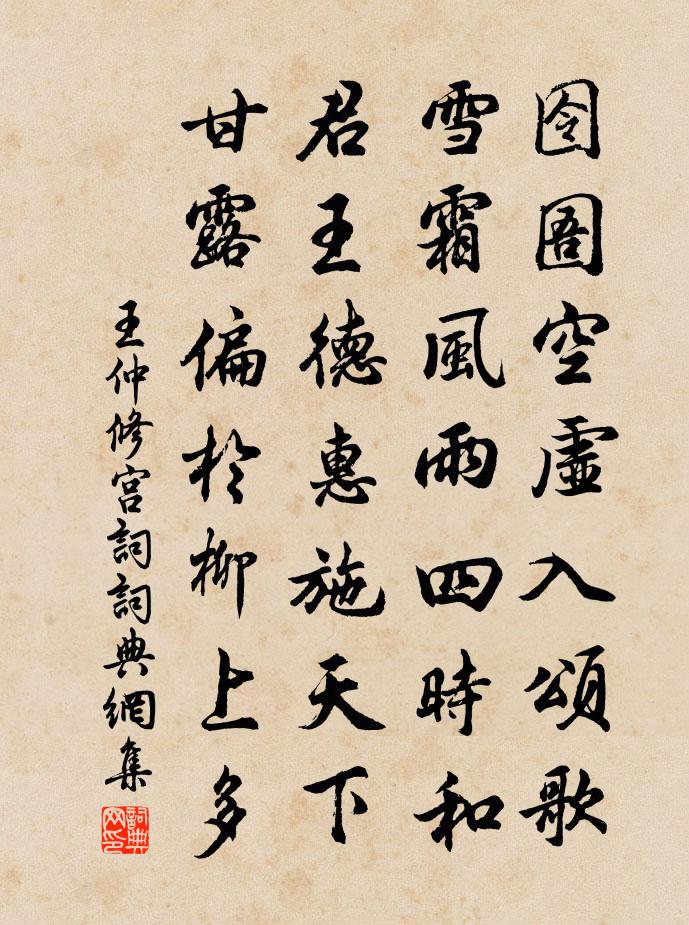 囹圄空虛入頌歌
雪霜風雨四時和
君王德惠施天下
甘露偏於柳上多
王仲修宮詞詞典網集
詞典网印